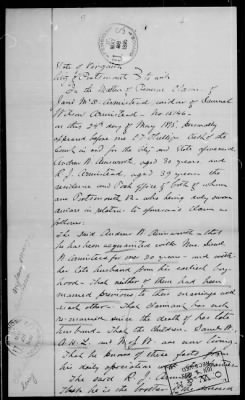 State of Virginia
City of Portsmouth To wit
In the Matter of Pension Claim of
Jane M. Armistead widow of Samuel
Wilson Armistead - No.
on this 28th day of May 1895, personally
appeared before me Clerk of the
Court in and for the City and State aforesaid
Andrew N. Ainsworth aged 30 years and
R. J. Armistead, aged 39 years the
residence and Post Office of both of whom
are Portsmouth Va. who being duly sworn
declare in relation to aforesaid Claim as
follows:
The said Andrew N. Ainsworth - that
he has been acquainted with Mrs. Jane
M. Armistead for over 20 years - and with
her late husband from his earliest boy-
hood - That neither of them had been
married previous to their marriage with
each other. That Claimant has not
re-married since the death of her late
husband. That the Children, Samuel W.
and are now living.
That he knows of these facts from
his daily association
The said R. J. Armistead
That he is the brother of the deceased